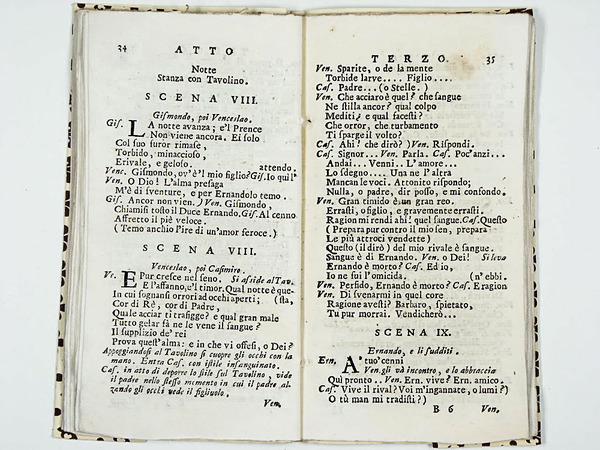 34
ATTO
Notte
Stanza con Tavolino.
SCENA VIII.
Gismondo, poi Venceslao.
Gis. LA notte avanza; e'l Prence
Non viene ancora. Ei solo
Col suo furor rimase,
Torbido, minaccioso,
Erivale, e geloso. attendo.
Venc. Gismondo, ov'è'l mio figlio? Gis. Io qui l'
Ven. O Dio! L'alma presaga
M'è di sventure, e per Ernandolo temo.
Gis. Ancor non vien. ) Ven. Gismondo,
Chiamisi tosto il Duce Ernando. Gis. Al cenno
Affretto il piè veloce.
( Temo anchio l'ire di un'amor feroce. )
SCENA VIII.
Venceslao, poi Casimiro.
Ve. E Pur cresce nel seno. Si asside al Tav.
E l'affanno, e'l timor. Qual notte è que-
In cui sognansi orrori ad occhi aperti; (sta,
Cor di Rè, cor di Padre,
Quale acciar ti trafigge? e qual gran male
Tutto gelar fà ne le vene il sangue?
Il supplizio de' rei
Prova quest'alma: e in che vi offesi, o Dei?
Appoggiandosi al Tavolino si cuopre gli occhi con la
mano. Entra Cas. con istile insanguinato.
Cas. in atto di deporre lo stile sul Tavolino, vide
il padre nello stesso memento in cui il padre al-
zando gli occhi vede il figliuolo.
Ven.
TERZO.
35
Ven. Sparite, o de la mente
Torbide larve.... Figlio....
Cas. Padre... (o Stelle.)
Ven. Che acciaro è quel? che sangue
Ne stilla ancor? qual colpo
Mediti, e qual facesti?
Che orror, che turbamento
Ti sparge il volto?
Cas. Ahi! che dirò?) Ven. Rispondi.
Cas. Signor... Ven. Parla. Cas. Poc'anzi...
Andai... Venni.. L'amore...
Lo sdegno.... Una ne l'altra
Mancan le voci. Attonito rispondo;
Nulla, o padre, dir posso, e mi confondo.
Ven. Gran timido è un gran reo.
Errasti, o figlio, e gravemente errasti.
Ragion mi rendi ahi! quel sangue. Cas. Questo
( Prepara pur contro il mio sen, prepara
Le più attroci vendette)
Questo (il dirò) del mio rivale è sangue.
Sangue è di Ernando. Ven. o Dei! Si leva
Ernando è morto? Cas. Ed io,
Io ne fui l'omicida. (n'ebbi.
Ven. Perfido, Ernando è morto? Cas. E ragion
Ven. Di svenarmi in quel core
Ragione avesti? Barbaro, spietato,
Tu pur morrai. Vendicherò...
SCENA IX.
Ernando, e li sudditi.
Ern. A' tuo' cenni
Ven. gli và incontro, e lo abbraccia
Qui pronto.. Ven. Ern. vive? Ern. amico.
Cas. Vive il rival? Voi m'ingannate, o lumi?)
O tù man mi tradisti?)
B 6
Ven.